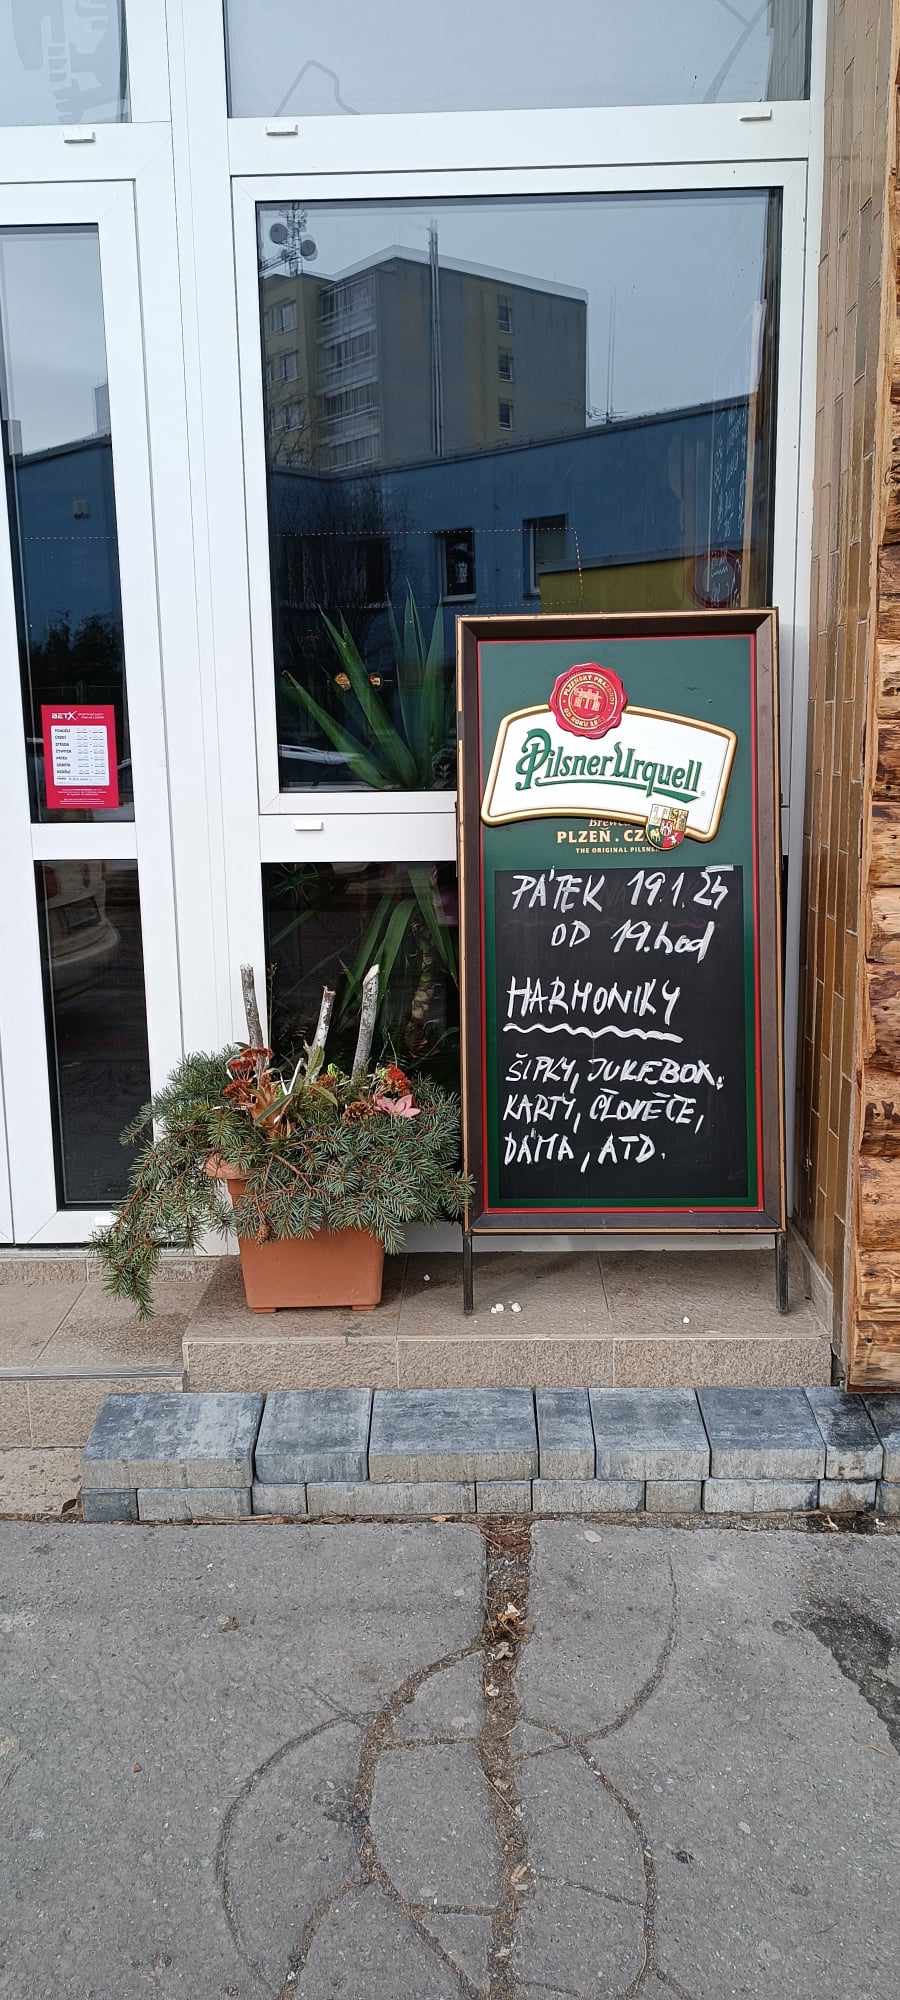 PLZEŇSKÝ PRAZDROJ
Pilsner Urquell
PLZEŇ . CZ
THE ORIGINAL PILSNE
PÁTEK 19.1.25
OD 19.hod
HARMONIKY
ŠIPKY, JUKEBOX,
KARTY, ČLOVĚČE,
DÁMA, ATD.
BETX
PONDĚLÍ
ÚTERÝ
STŘEDA
ČTVRTEK
PÁTEK
SOBOTA
NEDĚLE